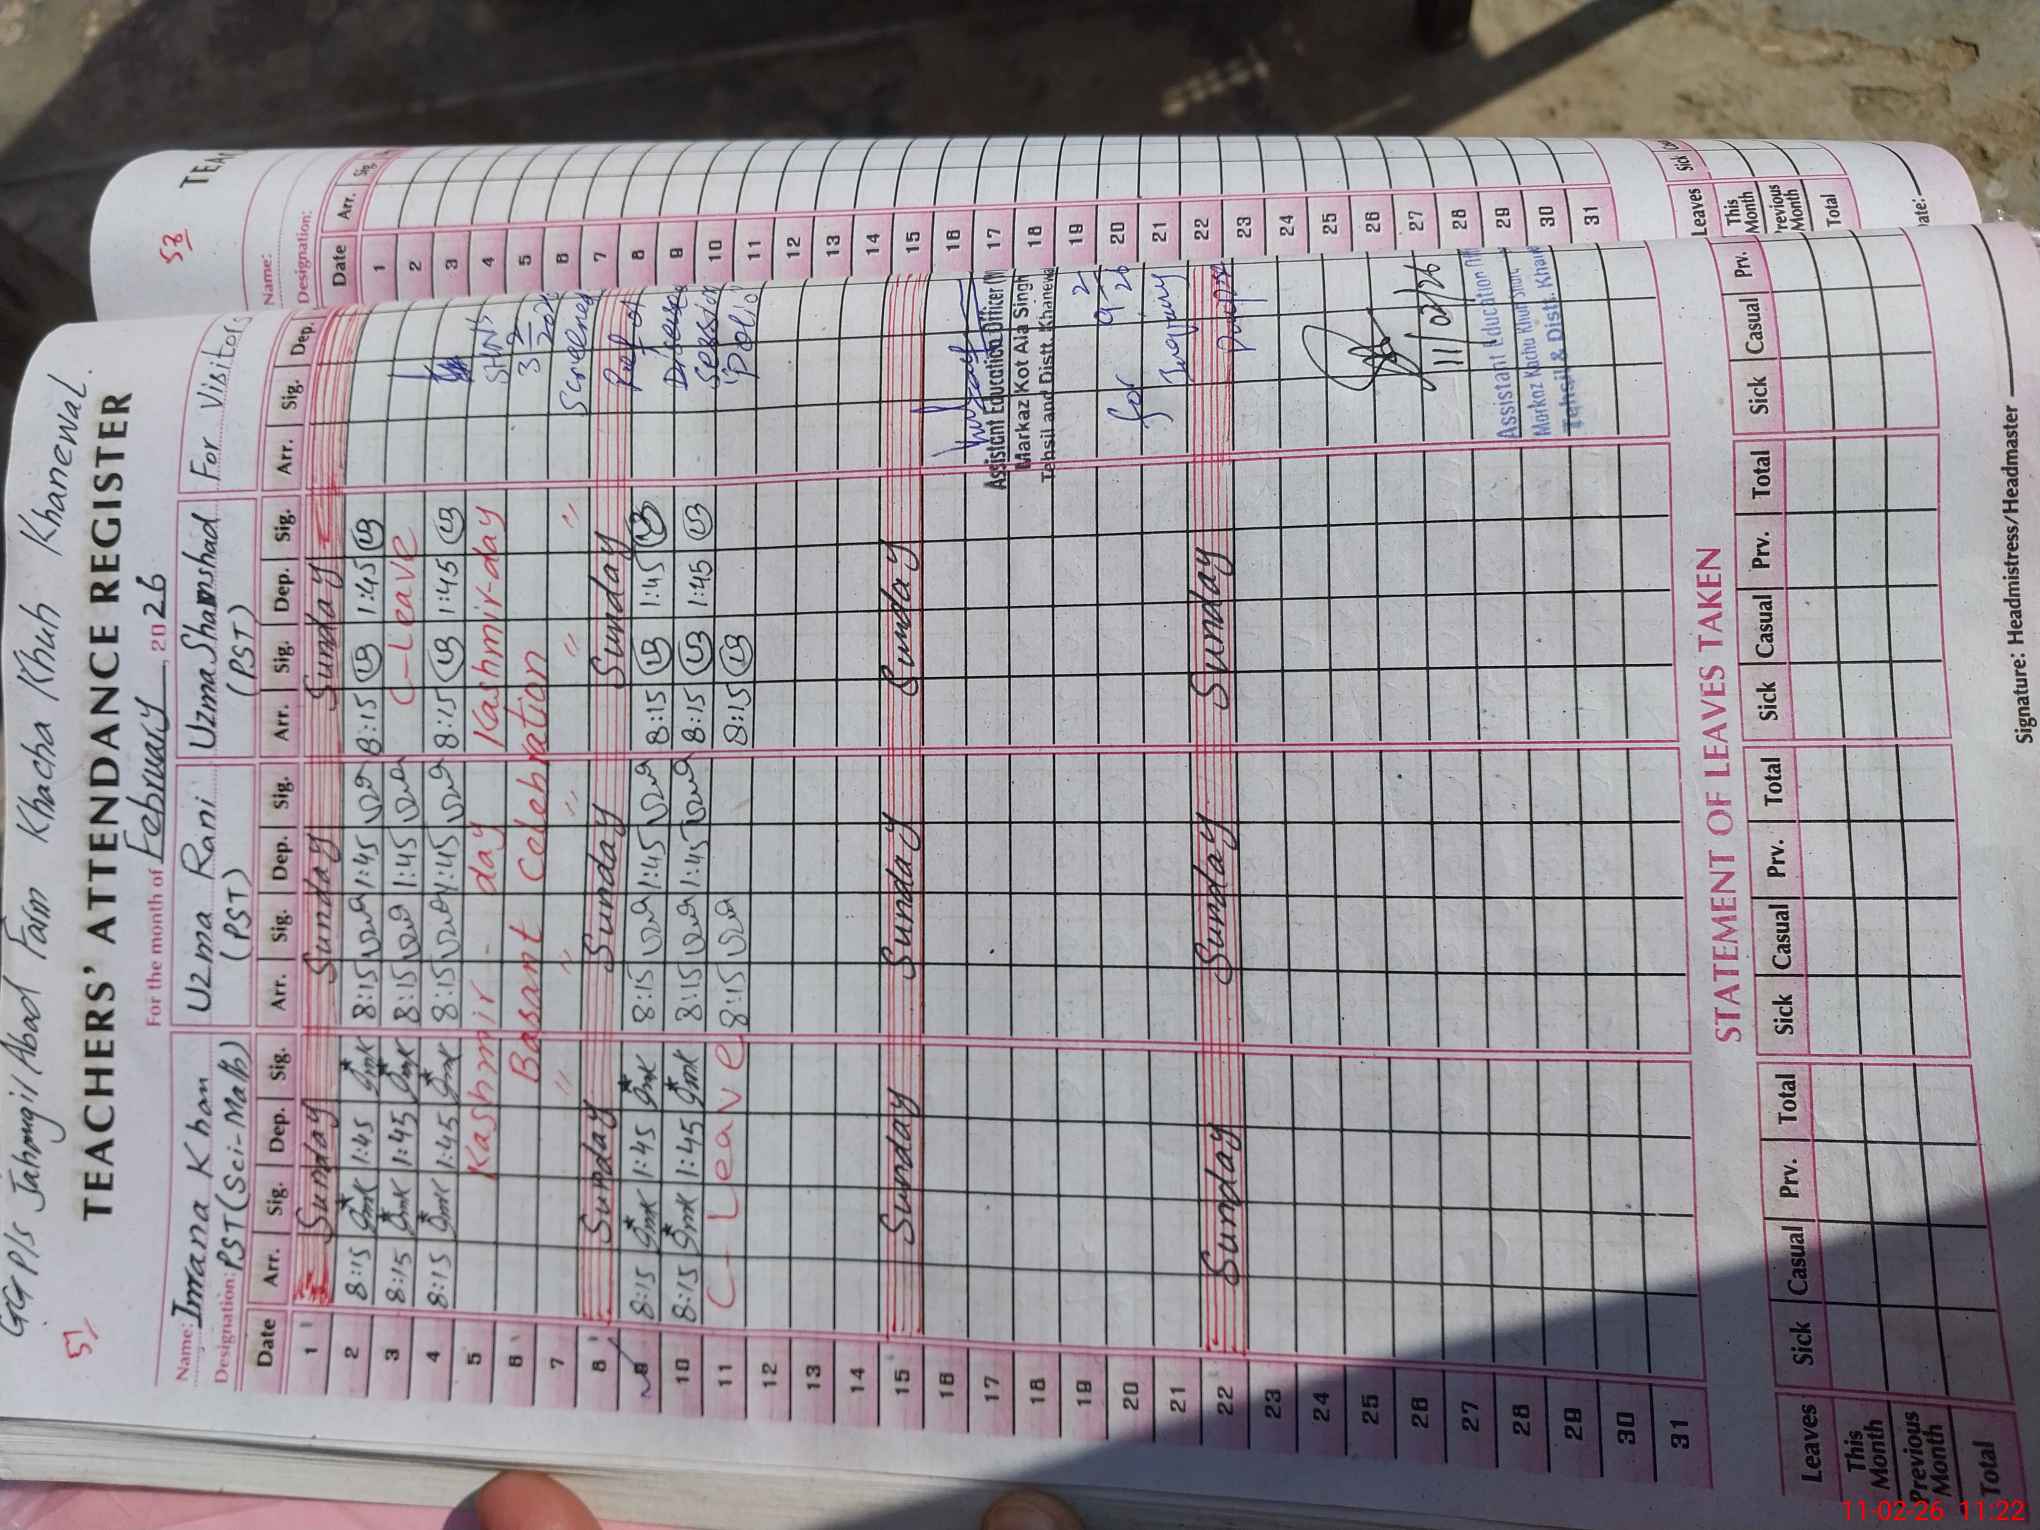 GGP/S Jahngil Abad Fam Khacha Khuh Khanewal.
51
TEACHERS' ATTENDANCE REGISTER
For the month of February, 2026
Name: Imrana Khan
Uzma Rani
Uzma Shamshad
For Visitors
Designation: PST (Sci-Math)
(PST)
(PST)
Date Arr. Sig. Dep. Sig. Arr. Sig. Dep. Sig. Arr. Sig. Dep. Sig. Arr. Sig. Dep.
1 Sunday Sunday Sunday
2 8:15 1:45 8:15 1:45 8:15 1:45
3 8:15 1:45 8:15 1:45 C-Leave
4 8:15 1:45 8:15 1:45 8:15 1:45
5 Kashmir - day Kashmir-day
6 Basant Celebration
7 " " " " "
8 Sunday Sunday Sunday
9 8:15 1:45 8:15 1:45 8:15 1:45
10 8:15 1:45 8:15 1:45 8:15 1:45
11 C-Leave 8:15 8:15
12
13
14
15 Sunday Sunday Sunday
16
17
18
19
20
21
22 Sunday Sunday Sunday
23
24
25
26
27
28
29
30
31
3
2
Disease
Session
Polio
Assistant Education Officer
Markaz Kot Ala Singh
Tehsil and Distt. Khanewal
for
11/02/26
Assistant Education
Markaz Kacha Khuh
Tehsil & Distt. Khan
STATEMENT OF LEAVES TAKEN
Leaves Sick Casual Prv. Total Sick Casual Prv. Total Sick Casual Prv. Total Sick Casual Prv.
This Month
Previous Month
Total
Signature: Headmistress/Headmaster
58
TEAC
Name:
Designation:
Date Arr. Sig.
1
2
3
4
5
6
7
8
9
10
11
12
13
14
15
16
17
18
19
20
21
22
23
24
25
26
27
28
29
30
31
Leaves Sick
This Month
Previous Month
Total
ate:
11-02-26 11:22